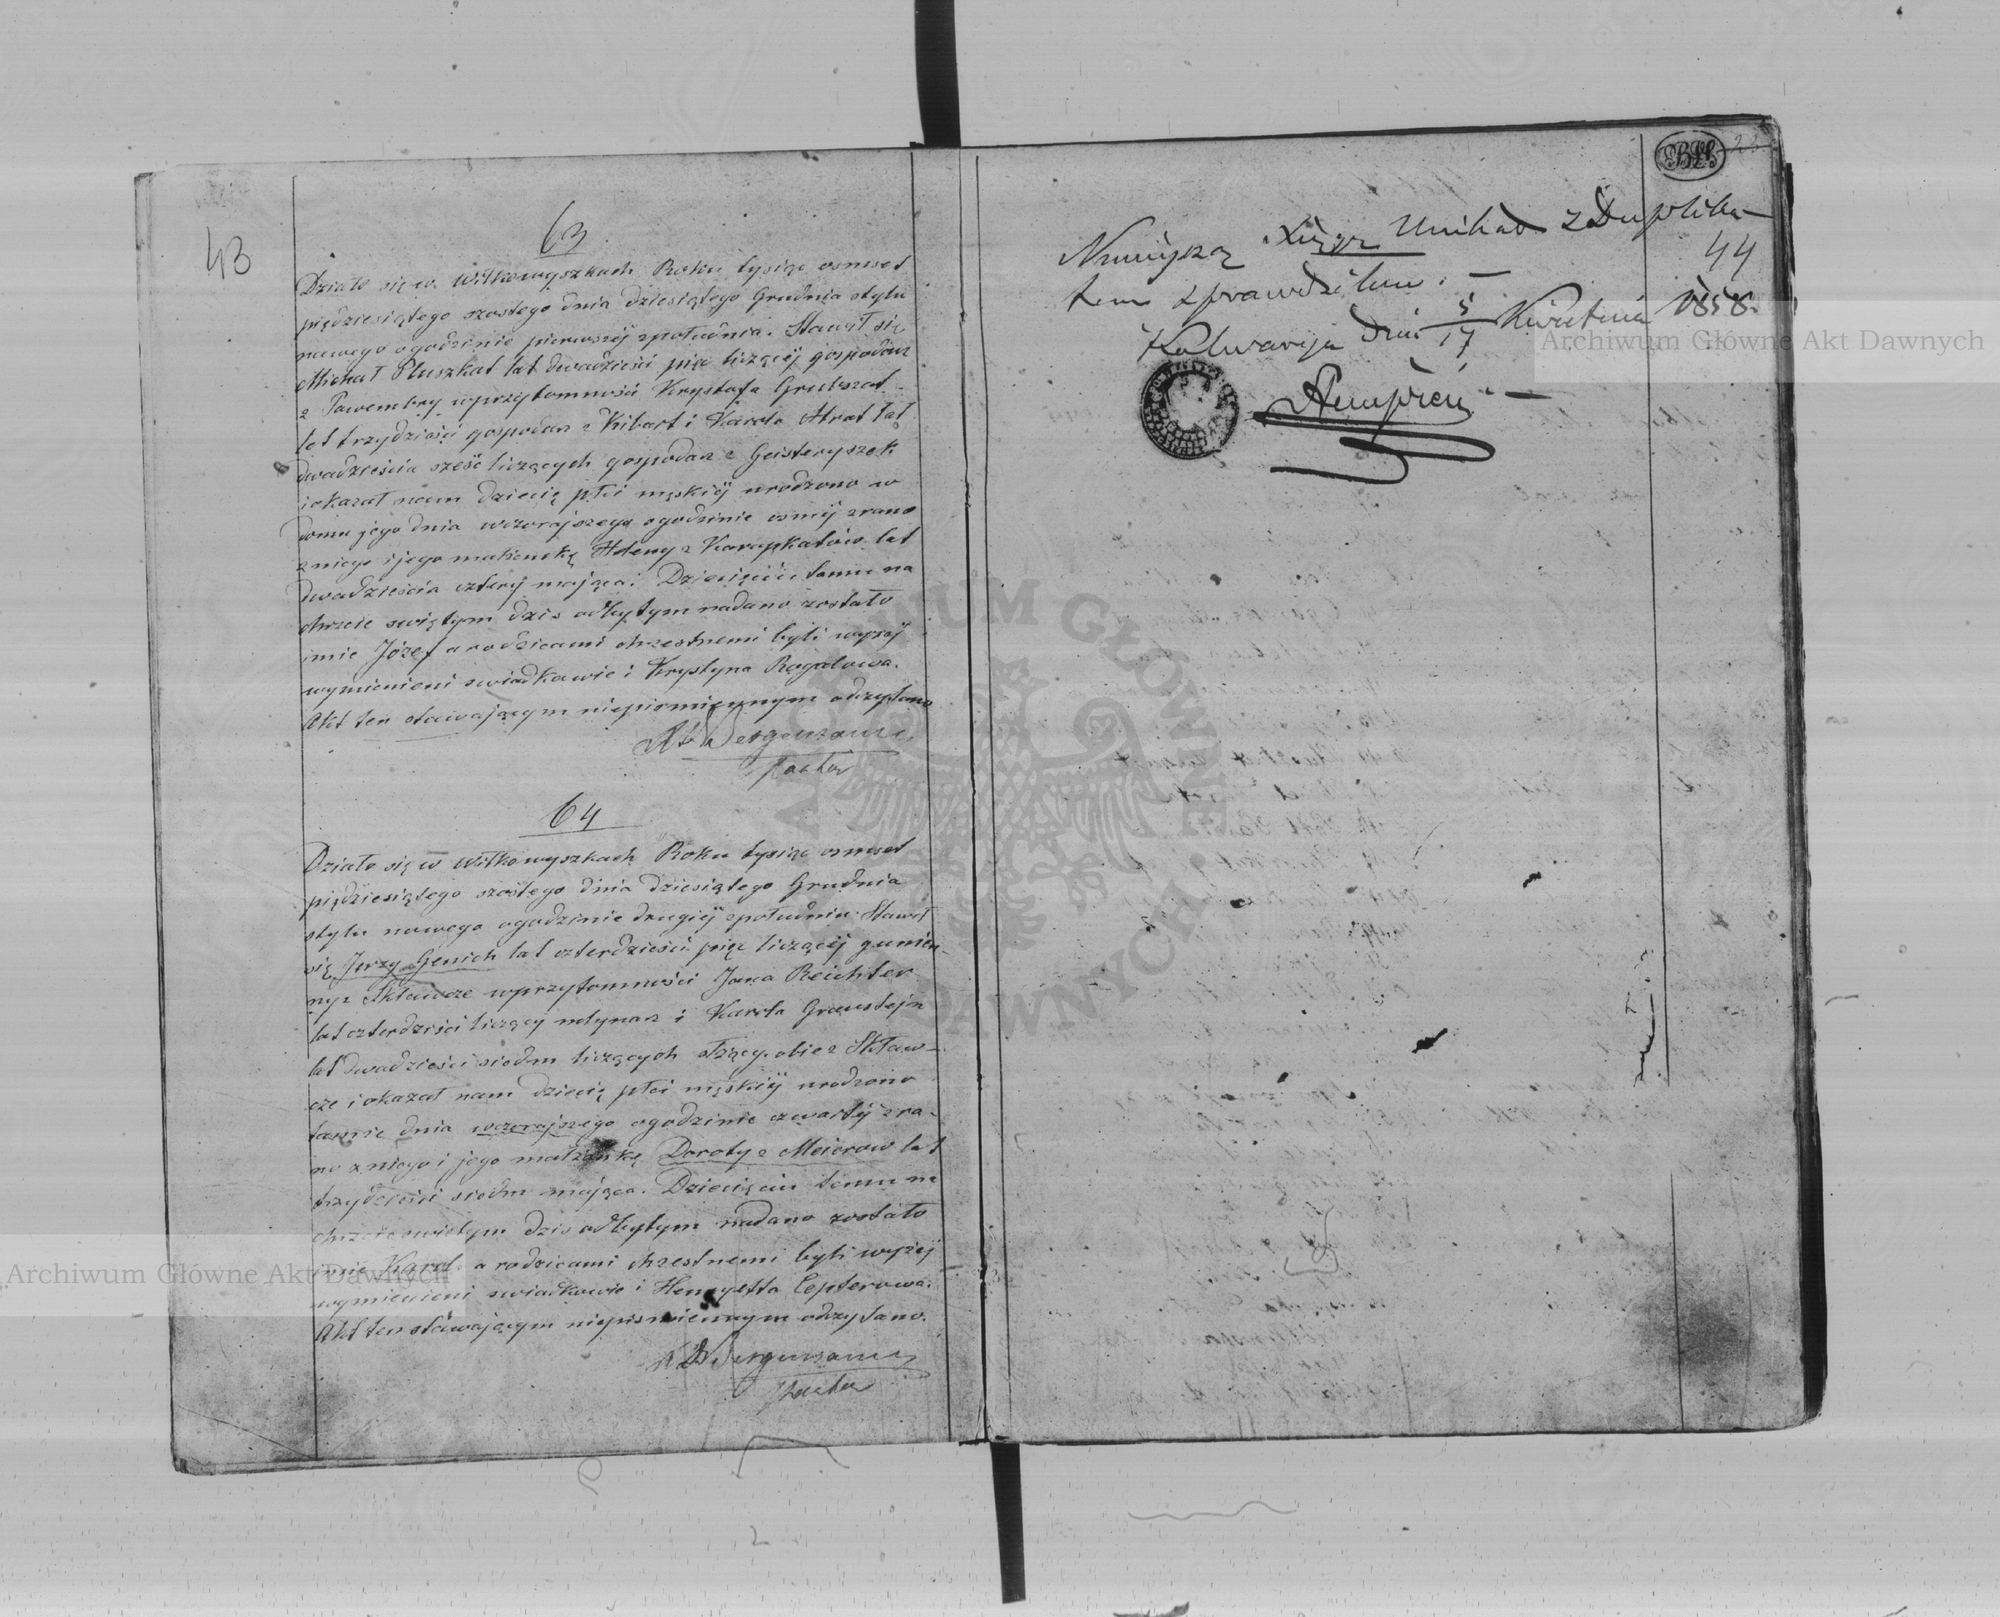 43
63
Działo się w Wiłkowyszkach Roku tysiąc osmset
piędziesiątego szostego dnia dziesiątego Grudnia stylu
nowego ogodzinie pierwszéj zpołudnia. Stawił się
Michał Pluszkat lat dwadzieścia pięc liczącÿ gospodarz
z Pawembry wprzytomności Krysztofa Grubszat
lat trzydzieści gospodarz z Kibart i Karola Strat lat
dwadzieścia sześć liczących gospodarz z Geisteryszek
i okazał nam dziecię płci męskiÿ urodzone w
domu jego dnia wczorajszego ogodzinie osmÿ zrana
z niego i jego małżonkę Heleny z Karapkatów lat
dwadzieścia cztery mająca. Dziecięciu temu na
chrzcie swiętym dzis odbytym nadano zostało
imie Józef a rodzicami chrzestnemi byli wyżéj
wymienieni swiadkowie i Krystyna Rogalowa.
Akt ten stawającym niepismiennym odczytano
Bergemann
Pastor
64
Działo się w Wiłkowyszkach Roku tysiąc osmset
piędziesiątego szostego dnia dziesiątego Grudnia
stylu nowego ogodzinie drugiéj zpołudnia. Stawił
się Jerzy Genich lat czterdzieści pięc liczącÿ gumien-
ny z Skławcze wprzytomności Jana Reichter
lat czterdzieści liczący młynarz i Karola Graustejn
lat dwadzieścia siedm liczących służący obie z Skław-
cze i okazał nam dziecię płci męskiÿ urodzono
tamie dnia wczorajszego ogodzinie czwartÿ zra-
no z niego i jego małżonkę Doroty z Meierow lat
trzydzieści siedm mająca. Dziecięciu temu na
chrzcie swiętym dzis odbytym nadano zostało
imie Karol a rodzicami chrzestnemi byli wyżéj
wymienieni swiadkowie i Henryetta Lepterowa.
Akt ten stawającym niepismiennym odczytano.
Bergemann
Pastor
Niniejszą Xięgę Unikat z Duplika-
44
tem sprawdziłem.
Kalwaryja Dnia 5/17 Kwietnia 1858.
Archiwum Główne Akt Dawnych
Archiwum Główne Akt Dawnych
ARCHIWUM GŁÓWNE AKT DAWNYCH